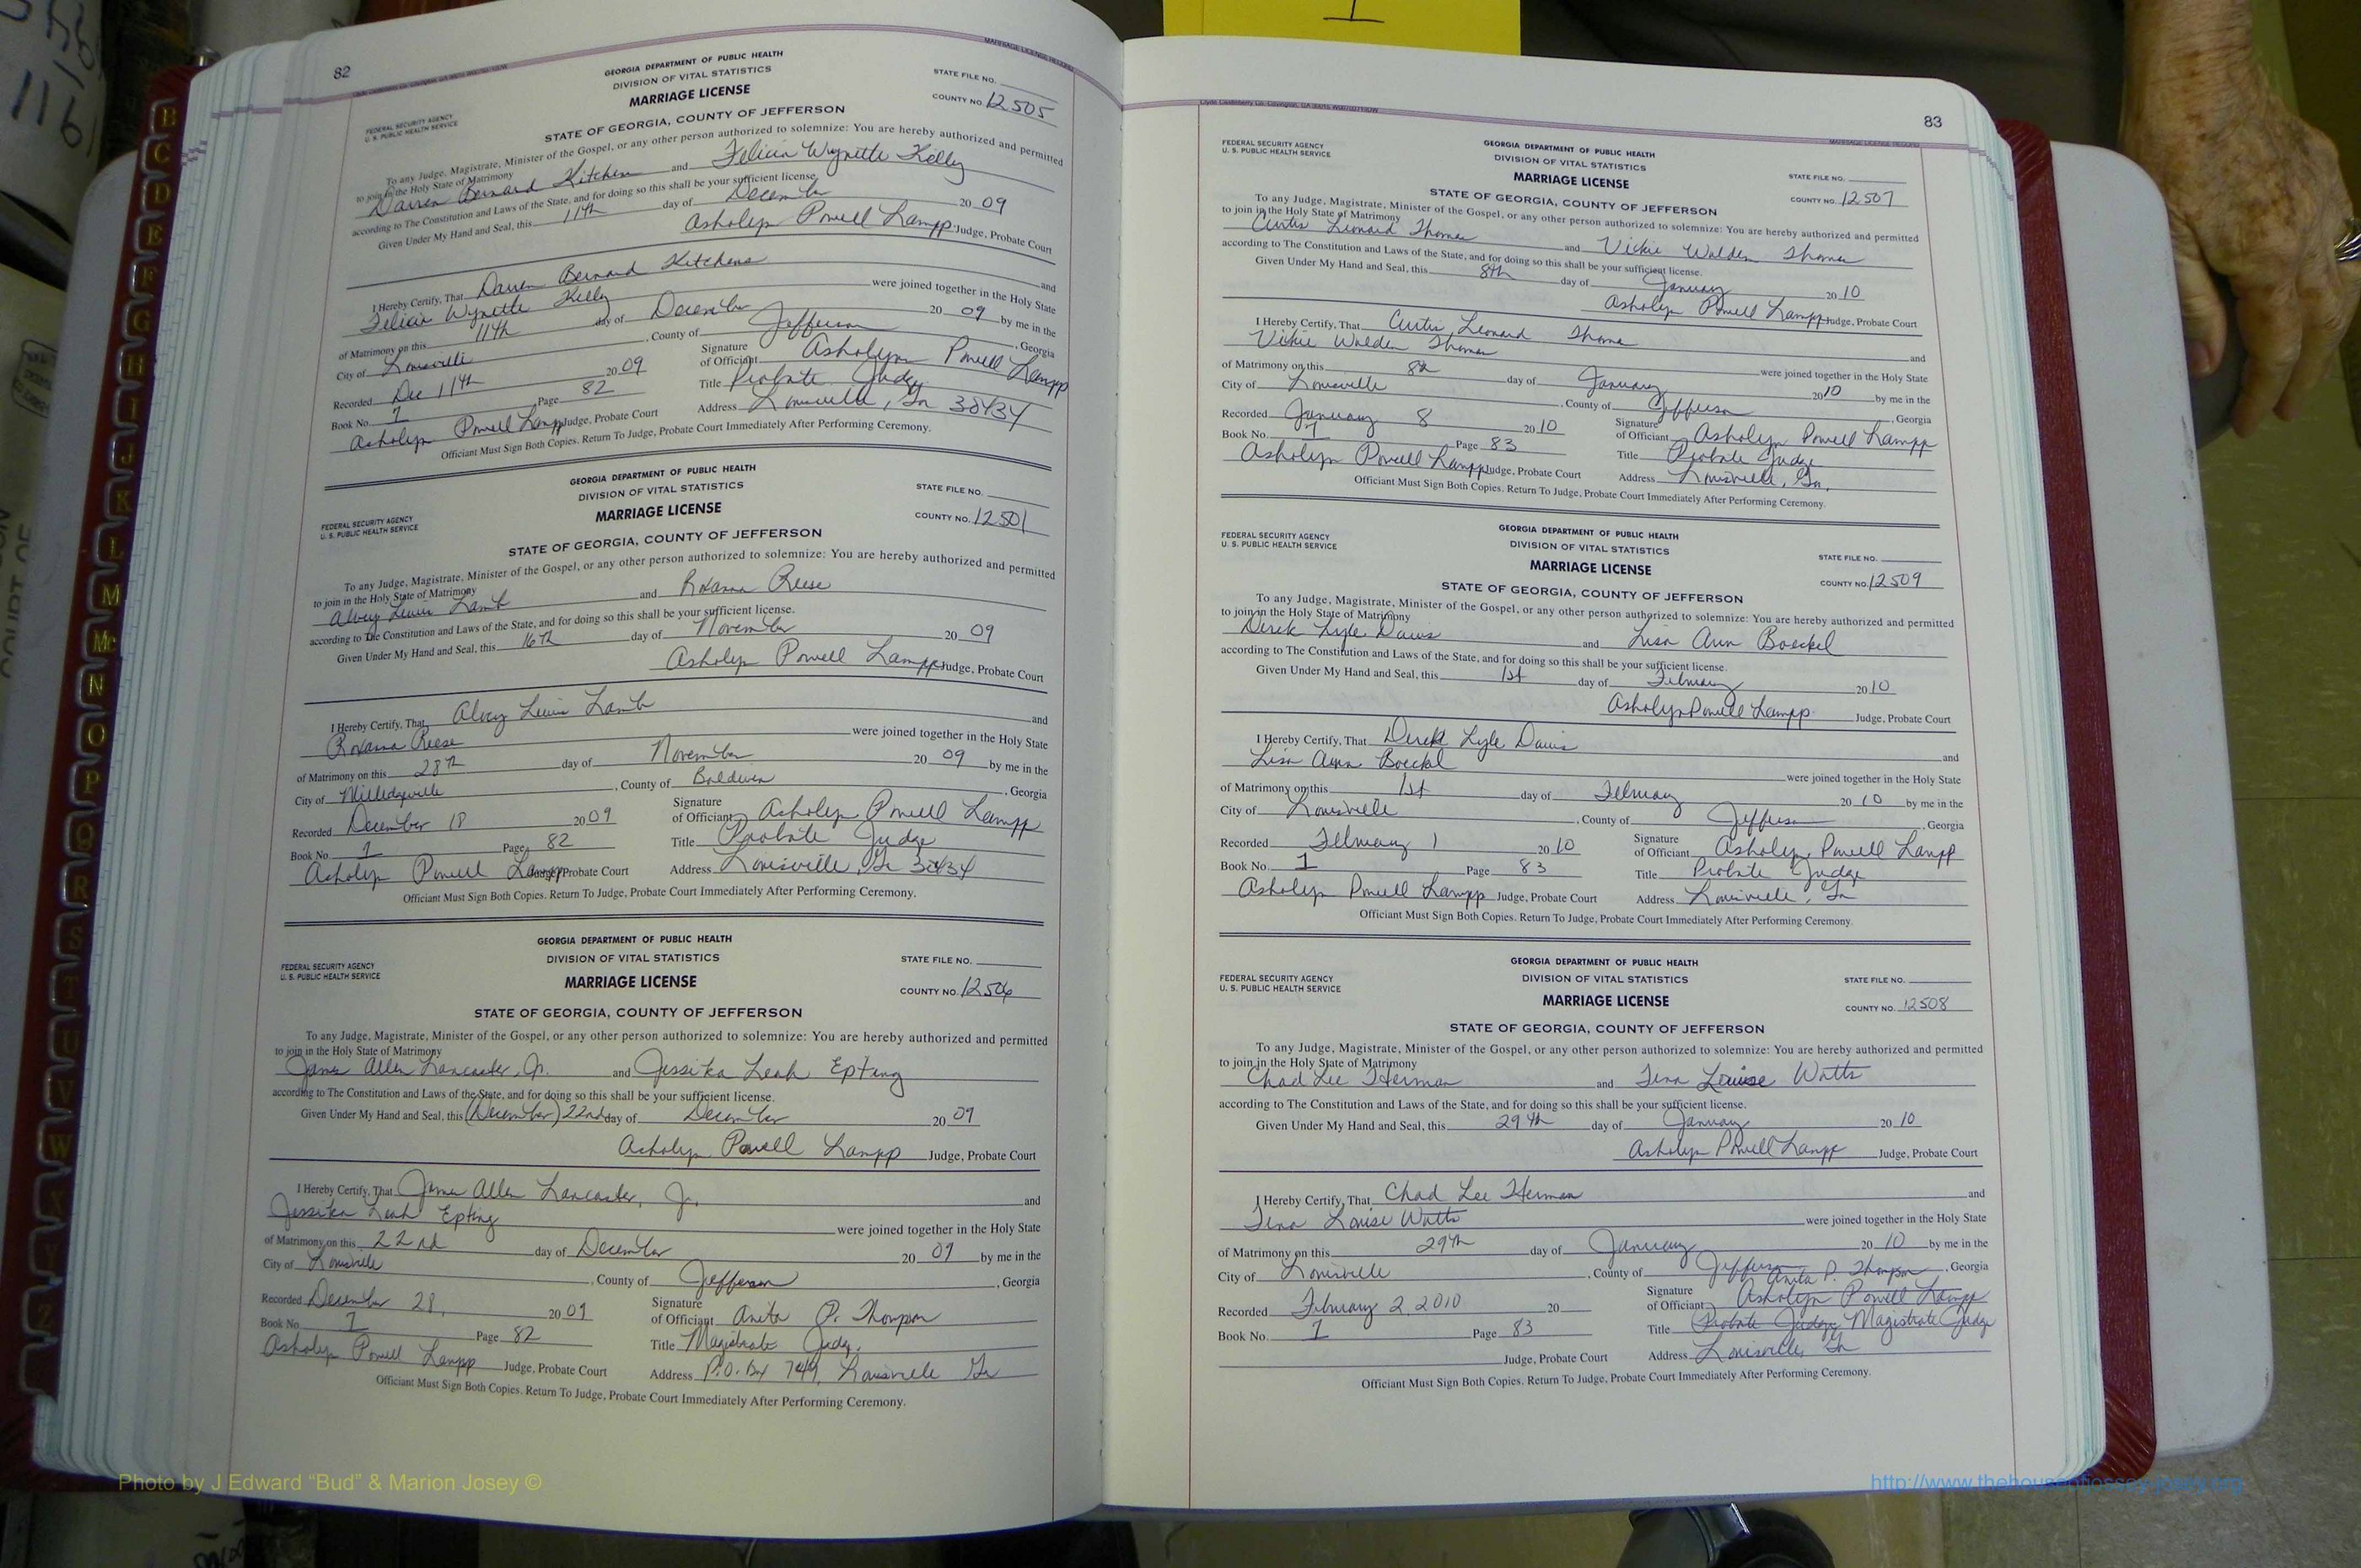 82
MARRIAGE LICENSE RECORD
GEORGIA DEPARTMENT OF PUBLIC HEALTH
DIVISION OF VITAL STATISTICS
MARRIAGE LICENSE
STATE FILE NO.
COUNTY NO. 12505
FEDERAL SECURITY AGENCY
U. S. PUBLIC HEALTH SERVICE
STATE OF GEORGIA, COUNTY OF JEFFERSON
To any Judge, Magistrate, Minister of the Gospel, or any other person authorized to solemnize: You are hereby authorized and permitted
to join in the Holy State of Matrimony
Darren Bernard Kitchen and Felicia Wynette Kelly
according to The Constitution and Laws of the State, and for doing so this shall be your sufficient license.
Given Under My Hand and Seal, this 11th day of December 20 09
Asholyn Powell Lampp Judge, Probate Court
I Hereby Certify, That Darren Bernard Kitchens and
Felicia Wynette Kelly were joined together in the Holy State
of Matrimony on this 11th day of December 20 09 by me in the
City of Louisville, County of Jefferson, Georgia
Recorded Dec 11th 20 09 Signature of Officiant Asholyn Powell Lampp
Book No. 1 Page 82 Title Probate Judge
Asholyn Powell Lampp Judge, Probate Court Address Louisville, Ga 30434
Officiant Must Sign Both Copies. Return To Judge, Probate Court Immediately After Performing Ceremony.
GEORGIA DEPARTMENT OF PUBLIC HEALTH
DIVISION OF VITAL STATISTICS
MARRIAGE LICENSE
STATE FILE NO.
COUNTY NO. 12501
FEDERAL SECURITY AGENCY
U. S. PUBLIC HEALTH SERVICE
STATE OF GEORGIA, COUNTY OF JEFFERSON
To any Judge, Magistrate, Minister of the Gospel, or any other person authorized to solemnize: You are hereby authorized and permitted
to join in the Holy State of Matrimony
Alvey Lewis Lamb and Roxanna Reese
according to The Constitution and Laws of the State, and for doing so this shall be your sufficient license.
Given Under My Hand and Seal, this 16th day of November 20 09
Asholyn Powell Lampp Judge, Probate Court
I Hereby Certify, That Alvey Lewis Lamb and
Roxanna Reese were joined together in the Holy State
of Matrimony on this 28th day of November 20 09 by me in the
City of Milledgeville, County of Baldwin, Georgia
Recorded December 18 20 09 Signature of Officiant Asholyn Powell Lampp
Book No. 1 Page 82 Title Probate Judge
Asholyn Powell Lampp Judge, Probate Court Address Louisville, Ga 30434
Officiant Must Sign Both Copies. Return To Judge, Probate Court Immediately After Performing Ceremony.
GEORGIA DEPARTMENT OF PUBLIC HEALTH
DIVISION OF VITAL STATISTICS
MARRIAGE LICENSE
STATE FILE NO.
COUNTY NO. 12506
FEDERAL SECURITY AGENCY
U. S. PUBLIC HEALTH SERVICE
STATE OF GEORGIA, COUNTY OF JEFFERSON
To any Judge, Magistrate, Minister of the Gospel, or any other person authorized to solemnize: You are hereby authorized and permitted
to join in the Holy State of Matrimony
James Allen Lancaster, Jr. and Jessika Leah Epting
according to The Constitution and Laws of the State, and for doing so this shall be your sufficient license.
Given Under My Hand and Seal, this (December) 22nd day of December 20 09
Asholyn Powell Lampp Judge, Probate Court
I Hereby Certify, That James Allen Lancaster, Jr. and
Jessika Leah Epting were joined together in the Holy State
of Matrimony on this 22nd day of December 20 09 by me in the
City of Louisville, County of Jefferson, Georgia
Recorded December 28, 20 09 Signature of Officiant Anita P. Thompson
Book No. 1 Page 82 Title Magistrate Judge
Asholyn Powell Lampp Judge, Probate Court Address P.O. Box 749, Louisville Ga
Officiant Must Sign Both Copies. Return To Judge, Probate Court Immediately After Performing Ceremony.
83
MARRIAGE LICENSE RECORD
GEORGIA DEPARTMENT OF PUBLIC HEALTH
DIVISION OF VITAL STATISTICS
MARRIAGE LICENSE
STATE FILE NO.
COUNTY NO. 12507
FEDERAL SECURITY AGENCY
U. S. PUBLIC HEALTH SERVICE
STATE OF GEORGIA, COUNTY OF JEFFERSON
To any Judge, Magistrate, Minister of the Gospel, or any other person authorized to solemnize: You are hereby authorized and permitted
to join in the Holy State of Matrimony
Curtis Leonard Thomas and Vickie Walden Thomas
according to The Constitution and Laws of the State, and for doing so this shall be your sufficient license.
Given Under My Hand and Seal, this 8th day of January 20 10
Asholyn Powell Lampp Judge, Probate Court
I Hereby Certify, That Curtis Leonard Thomas and
Vickie Walden Thomas were joined together in the Holy State
of Matrimony on this 8th day of January 20 10 by me in the
City of Louisville, County of Jefferson, Georgia
Recorded January 8 20 10 Signature of Officiant Asholyn Powell Lampp
Book No. 1 Page 83 Title Probate Judge
Asholyn Powell Lampp Judge, Probate Court Address Louisville, Ga.
Officiant Must Sign Both Copies. Return To Judge, Probate Court Immediately After Performing Ceremony.
GEORGIA DEPARTMENT OF PUBLIC HEALTH
DIVISION OF VITAL STATISTICS
MARRIAGE LICENSE
STATE FILE NO.
COUNTY NO. 12509
FEDERAL SECURITY AGENCY
U. S. PUBLIC HEALTH SERVICE
STATE OF GEORGIA, COUNTY OF JEFFERSON
To any Judge, Magistrate, Minister of the Gospel, or any other person authorized to solemnize: You are hereby authorized and permitted
to join in the Holy State of Matrimony
Derek Lyle Davis and Lisa Ann Boeckel
according to The Constitution and Laws of the State, and for doing so this shall be your sufficient license.
Given Under My Hand and Seal, this 1st day of February 20 10
Asholyn Powell Lampp Judge, Probate Court
I Hereby Certify, That Derek Lyle Davis and
Lisa Ann Boeckel were joined together in the Holy State
of Matrimony on this 1st day of February 20 10 by me in the
City of Louisville, County of Jefferson, Georgia
Recorded February 1 20 10 Signature of Officiant Asholyn Powell Lampp
Book No. 1 Page 83 Title Probate Judge
Asholyn Powell Lampp Judge, Probate Court Address Louisville, Ga
Officiant Must Sign Both Copies. Return To Judge, Probate Court Immediately After Performing Ceremony.
GEORGIA DEPARTMENT OF PUBLIC HEALTH
DIVISION OF VITAL STATISTICS
MARRIAGE LICENSE
STATE FILE NO.
COUNTY NO. 12508
FEDERAL SECURITY AGENCY
U. S. PUBLIC HEALTH SERVICE
STATE OF GEORGIA, COUNTY OF JEFFERSON
To any Judge, Magistrate, Minister of the Gospel, or any other person authorized to solemnize: You are hereby authorized and permitted
to join in the Holy State of Matrimony
Chad Lee Herman and Tina Louise Watts
according to The Constitution and Laws of the State, and for doing so this shall be your sufficient license.
Given Under My Hand and Seal, this 29th day of January 20 10
Asholyn Powell Lampp Judge, Probate Court
I Hereby Certify, That Chad Lee Herman and
Tina Louise Watts were joined together in the Holy State
of Matrimony on this 29th day of January 20 10 by me in the
City of Louisville, County of Jefferson, Georgia
Anita P. Thompson
Recorded February 2, 2010 20 Signature of Officiant Asholyn Powell Lampp
Book No. 1 Page 83 Title Probate Judge Magistrate Judge
Judge, Probate Court Address Louisville, Ga
Officiant Must Sign Both Copies. Return To Judge, Probate Court Immediately After Performing Ceremony.
B
C
D
E
F
G
H
I
J
K
L
M
Mc
N
O
P
Q
R
S
T
U
V
W
Y
Z
Photo by J Edward “Bud” & Marion Josey ©
http://www.thehouseofjossey-josey.org